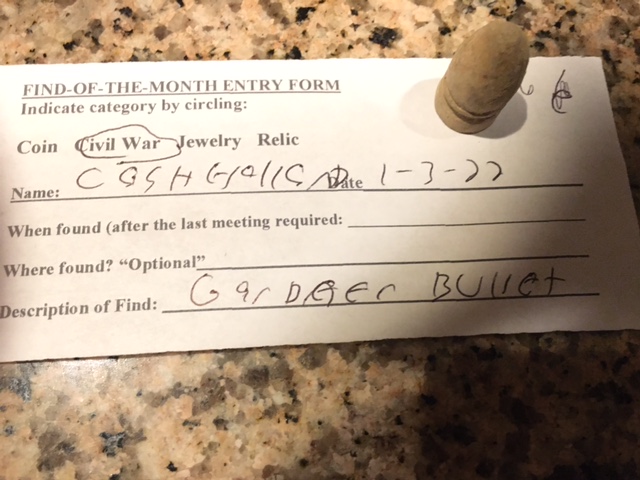 FIND-OF-THE-MONTH ENTRY FORM
Indicate category by circling:
Coin Civil War Jewelry Relic
Name: CASH Date 1-3-22
When found (after the last meeting required:
Where found? “Optional”
Description of Find: GarDner BUllet